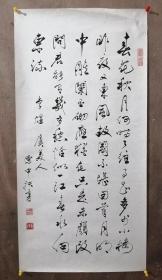 春花秋月何時了往事知多少小樓
昨夜又東風故國不堪回首月明
中雕闌玉砌應猶在只是朱顏改
問君能有幾多愁恰似一江春水向
東流 李煜 虞美人